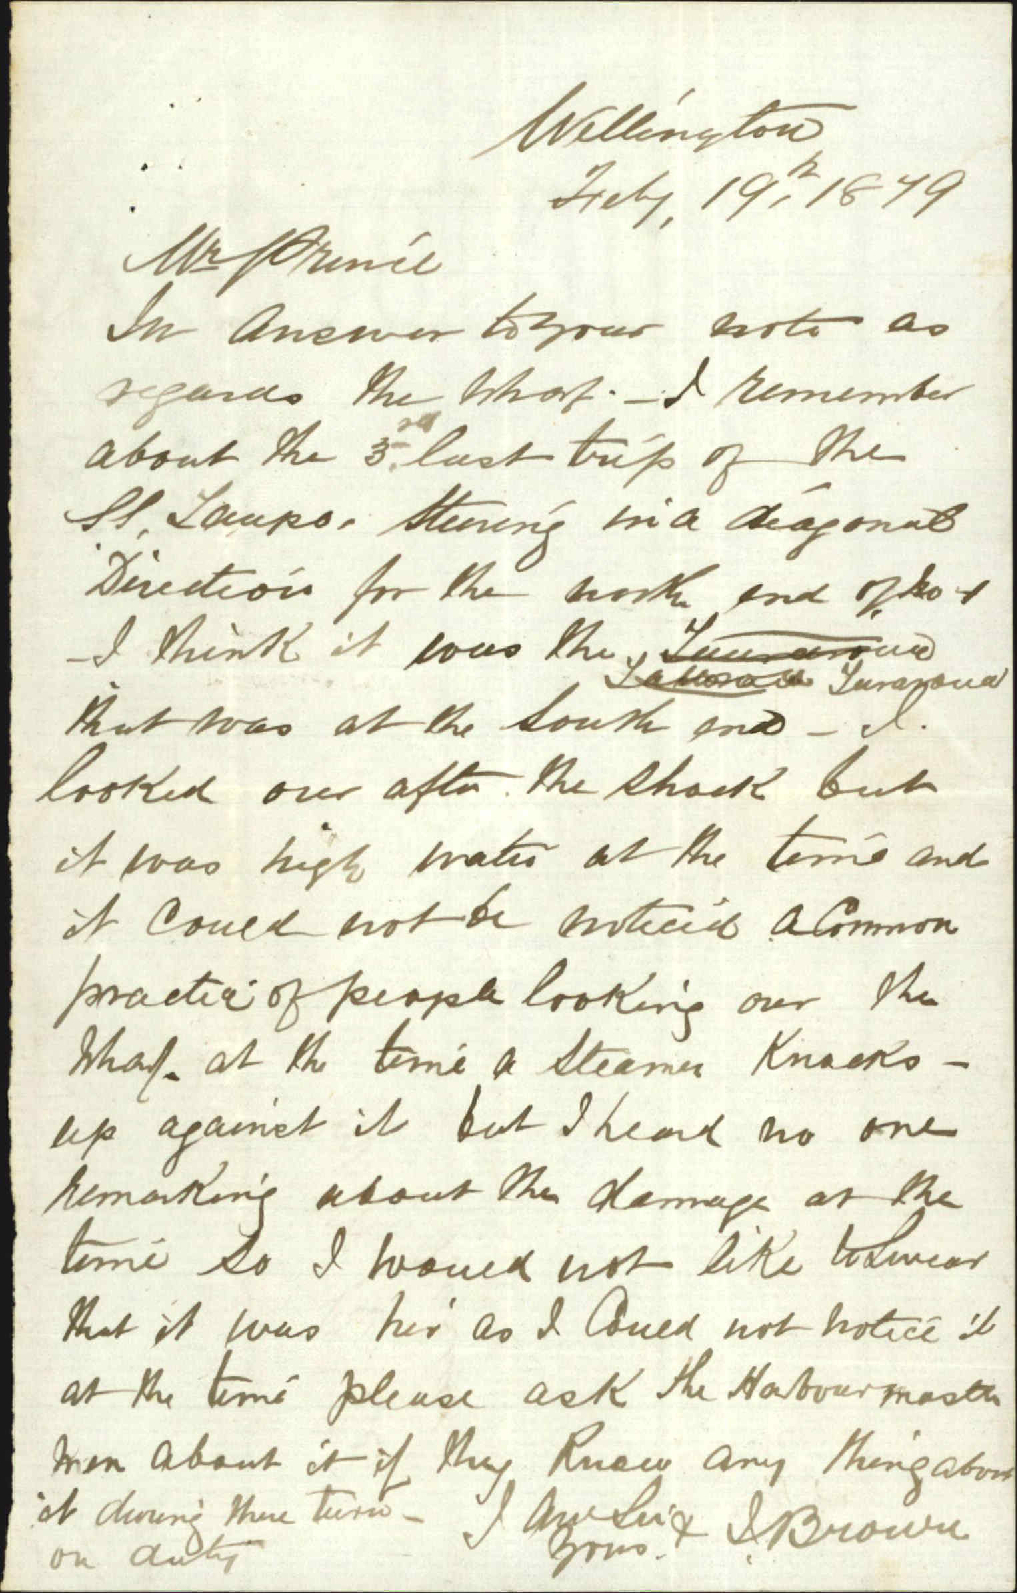 Wellington
Feby, 19th, 1879
Mr
In Answer to your note as
regards the Wharf. — I remember
about the 3rd last trip of the
SS, Taupo. Steering in a diagonal
Direction for the north end of No 1
— I think it was the Taranaua
Taranaua
that was at the South end — I.
looked over after the shock but
it was high water at the time and
it Could not be noticed a Common
practice of people looking over the
Wharf. at the time a Steamer Knocks —
up against it but I heard no one
remarking about the damage at the
time So I would not like to Swear
that it was her as I Could not notice it
at the time please ask the Harbourmaster
men about it if they Know any thing about
it during there turn —
on duty
I am Sir &
Yours.
J. Brown